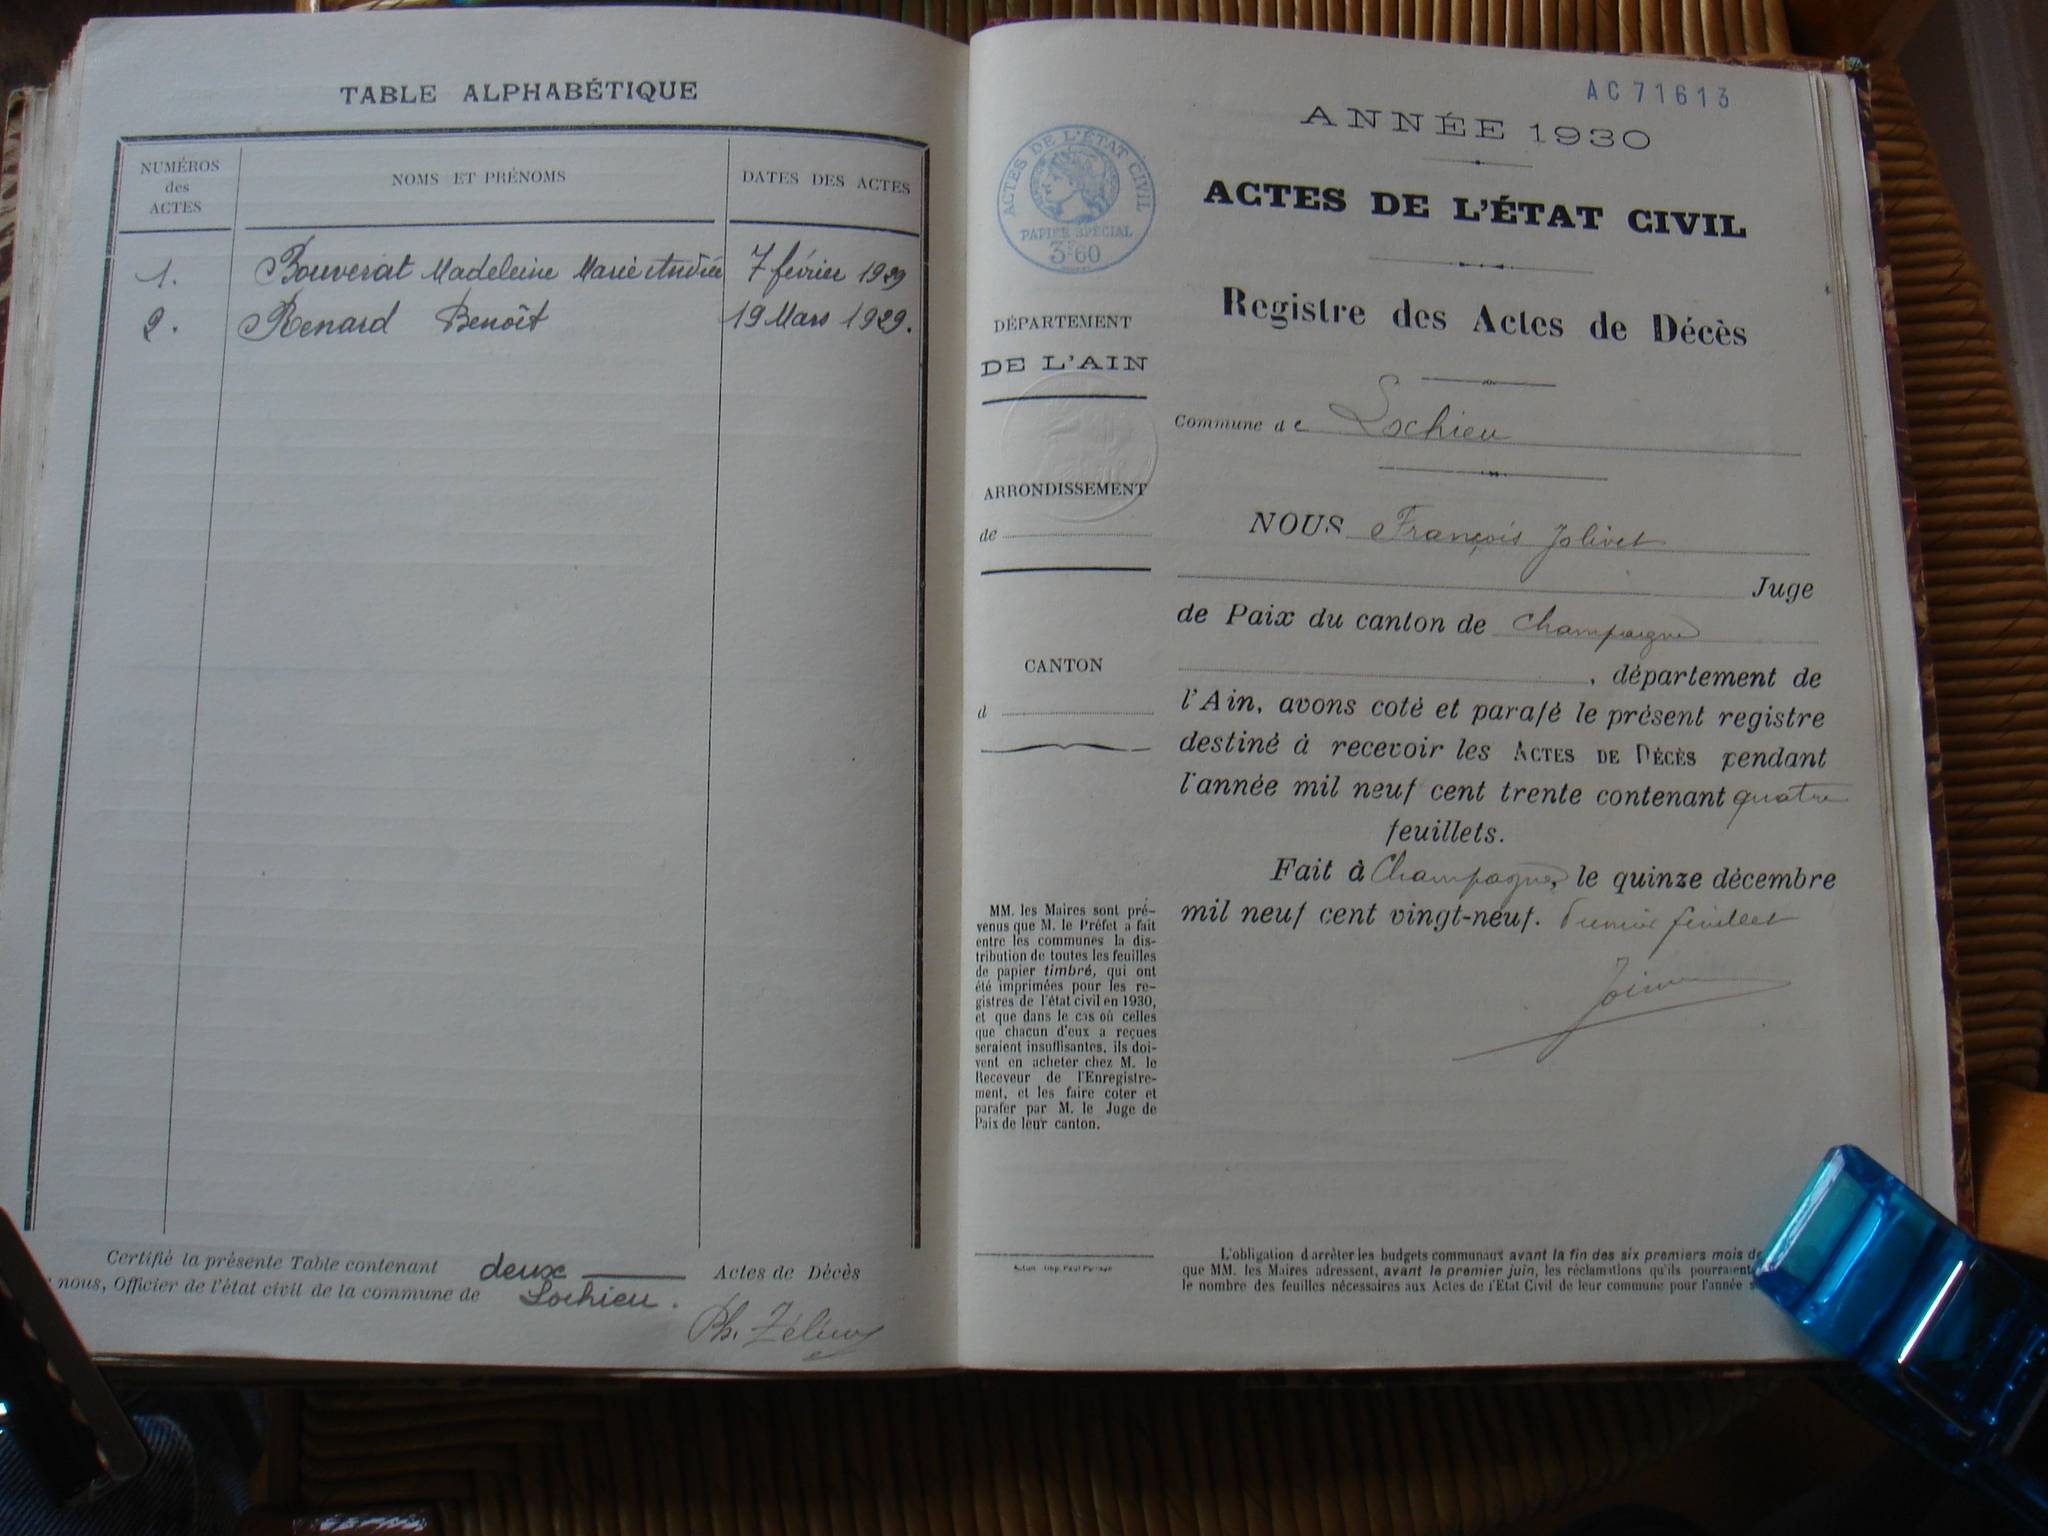 TABLE ALPHABÉTIQUE
NUMÉROS
des
ACTES
NOMS ET PRÉNOMS
DATES DES ACTES
1. Bouverat Madeleine Marie Andrée 7 février 1929
2. Renard Benoît 19 Mars 1929.
Certifié la présente Table contenant deux Actes de Décès
nous, Officier de l'état civil de la commune de Lochieu.
Ph.
AC71613
ANNÉE 1930
ACTES DE L'ÉTAT CIVIL
Registre des Actes de Décès
Commune de Lochieu
NOUS François Jolivet
Juge
de Paix du canton de Champagne
, département de
l'Ain, avons coté et parafé le présent registre
destiné à recevoir les ACTES DE DÉCÈS pendant
l'année mil neuf cent trente contenant quatre
feuillets.
Fait à Champagne, le quinze décembre
mil neuf cent vingt-neuf. Premier feuillet
ACTES DE L'ÉTAT CIVIL
PAPIER SPÉCIAL
3F60
DÉPARTEMENT
DE L'AIN
ARRONDISSEMENT
de
CANTON
d
MM. les Maires sont pré-
venus que M. le Préfet a fait
entre les communes la dis-
tribution de toutes les feuilles
de papier timbré, qui ont
été imprimées pour les re-
gistres de l'état civil en 1930,
et que dans le cas où celles
que chacun d'eux a reçues
seraient insuffisantes, ils doi-
vent en acheter chez M. le
Receveur de l'Enregistre-
ment, et les faire coter et
parafer par M. le Juge de
Paix de leur canton.
Imp. Paul
L'obligation d'arrêter les budgets communaux avant la fin des six premiers mois de
que MM. les Maires adressent, avant le premier juin, les réclamations qu'ils pourraient
le nombre des feuilles nécessaires aux Actes de l'Etat Civil de leur commune pour l'année